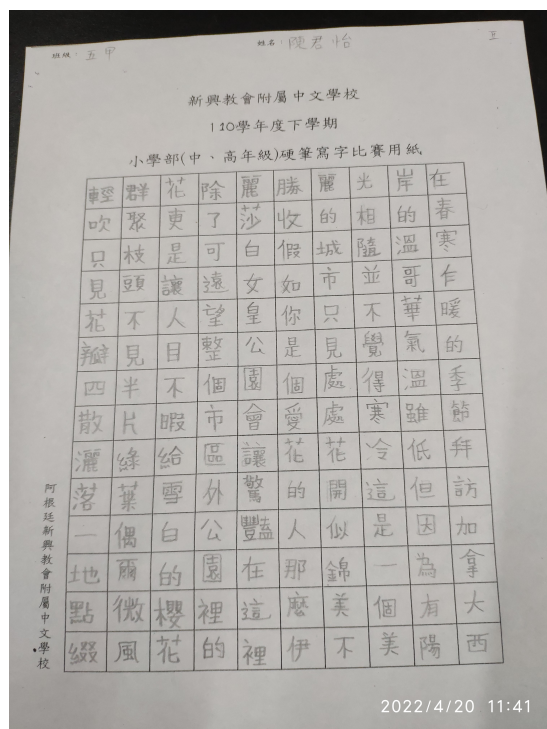 班級：五甲
姓名：陳君怡
五
新興教會附屬中文學校
110學年度下學期
小學部(中、高年級)硬筆寫字比賽用紙
在春寒乍暖的季節拜訪加拿大西
岸的溫哥華氣溫雖低但因為有陽
光相隨並不覺得寒冷這是一個美
麗的城市只見處處花開似錦美不
勝收假如你是個愛花的人那麼伊
麗莎白女皇公園會讓驚豔在這裡
除了可遠望整個市區外公園裡的
花更是讓人目不暇給雪白的櫻花
群聚枝頭不見半片綠葉偶爾微風
輕吹只見花瓣四散灑落一地點綴
阿根廷新興教會附屬中文學校
2022/4/20 11:41